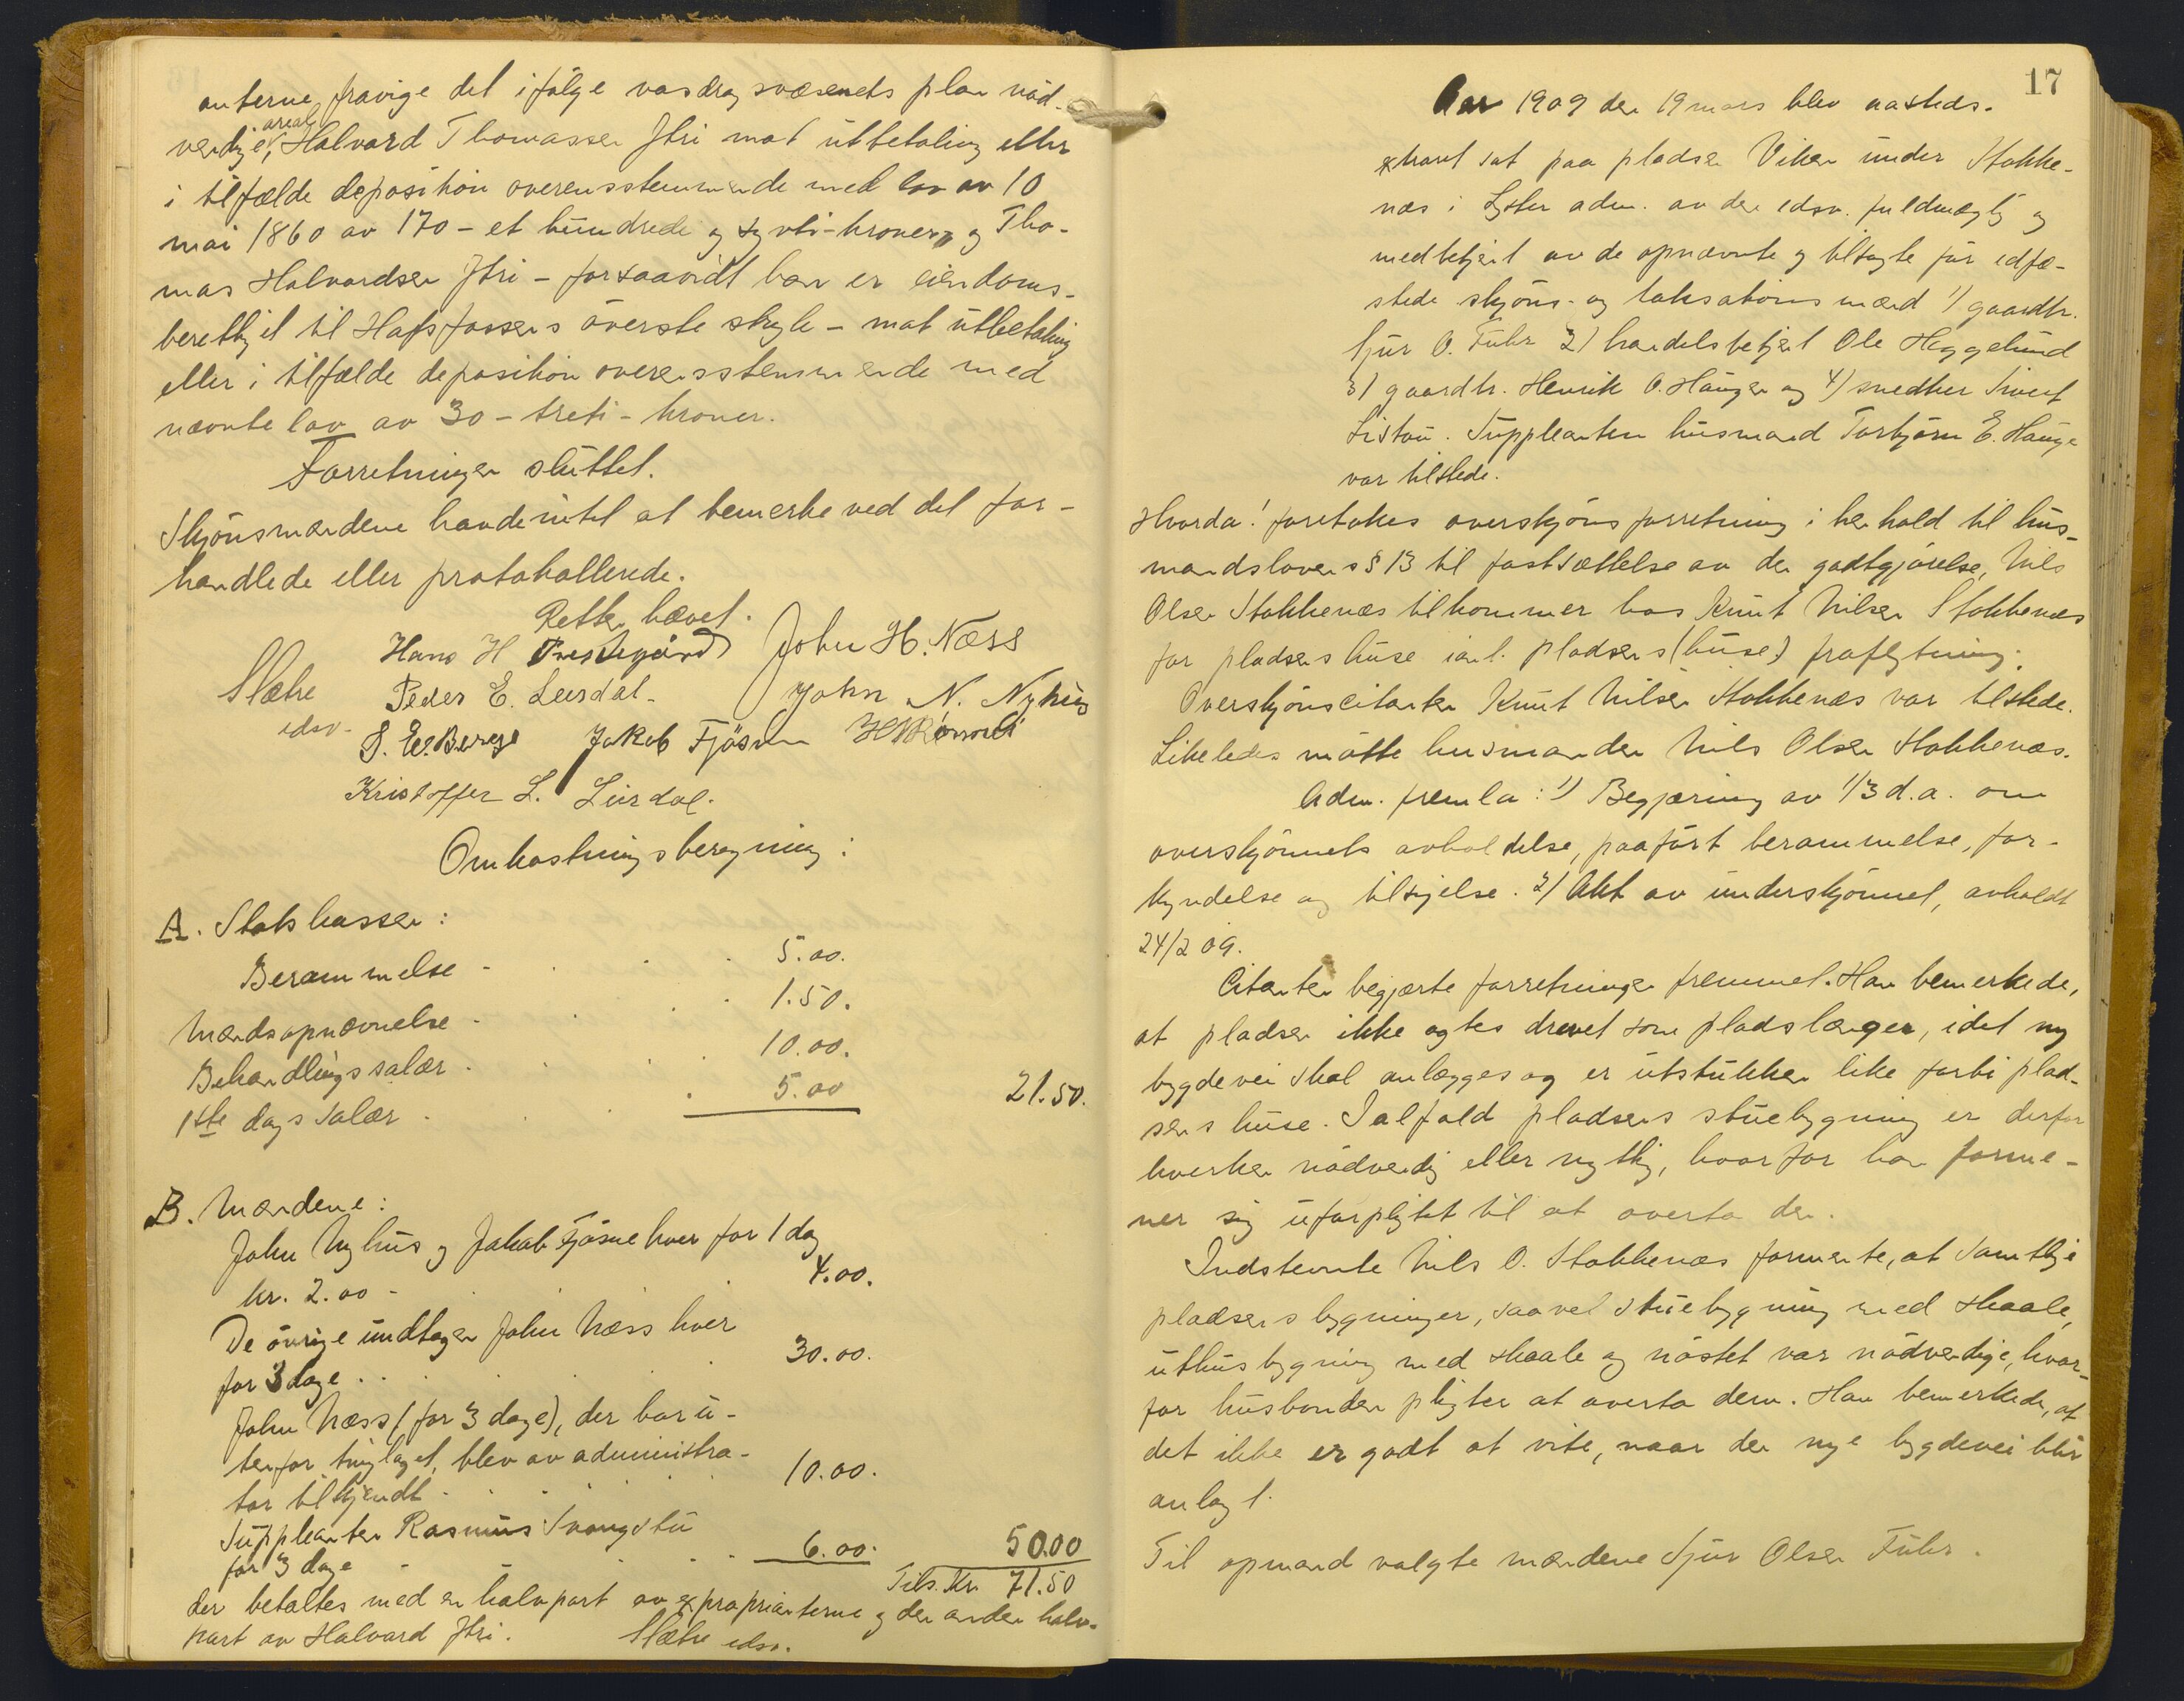 anterne fravige det ifølge vasdragsvæsenets plan nöd-
vendige areal, Halvard Thomassen Ytri mot utbetaling eller
i tilfælde deposition overensstemmende med lov av 10
mai 1860 av 170 - et hundrede og sytti - kroner, og Tho-
mas Halvardsen Ytri - forsaavidt han er eiendoms-
berettiget til Hafsfossens överste stryk - mot utbetaling
eller i tilfælde deposition overensstemmende med
nævnte lov av 30 - treti - kroner.
Forretningen sluttet.
Skjönsmændene havde intet at bemerke ved det for-
handlede eller protokollerede.
Retten hævet.
Hans H. Prestegård John H. Næss
Slætre Peder E. Leirdal. John N. Nyhus
edsv. S. E. Berge Jakob Fjösne
Kristoffer L. Leirdal.
Omkostningsberegning:
A. Statskassen:
Berammelse - 5.00.
Mændsopnævnelse - 1.50.
Behandlingssalær - 10.00.
1ste dags salær - 5.00 21.50.
B. Mændene:
John Nyhus og Jakob Fjösne hver for 1 dag
kr. 2.00 - 4.00.
De övrige undtagen John Næss hver
for 3 dage . . 30.00.
John Næss (for 3 dage), der bor u-
tenfor tinglaget, blev av administra-
tor tilkjendt 10.00.
Supplanten Rasmus
for 3 dage - 6.00. 50.00
Tils. Kr. 71.50
der betaltes med en halvpart av expropriantterne og den anden halv-
part av Halvard Ytri. Slætre edsv.
17
Aar 1909 den 19 mars blev aasteds-
extraret sat paa pladsen Viken under Stokke-
næs i Lyster adm. av den edsv. fuldmægtig og
medbetjent av de opnævnte og tiltagte för edfæ-
stede skjöns- og taksationsmænd 1) gaardbr.
Sjur O. Fuhr 2) handelsbetjent Ole Heggelund
3) gaardbr. Henrik O. Haugen og 4) snedker Sivert
Listou. Supplanten husmand Torbjörn E. Hauge
var tilstede.
Hvorda! foretokes overskjönsforretning i henhold til hus-
mandslovens § 13 til fastsættelse av den godtgjörelse, Nils
Olsen Stokkenæs tilkommer hos Knut Nilsen Stokkenæs
for pladsens huse ianl. pladsens (huse) fraflytning.
Overskjönscitanten Knut Nilsen Stokkenæs var tilstede.
Likeledes mötte husmanden Nils Olsen Stokkenæs.
Adm. fremla: 1) Begjæring av 1/3 d.a. om
overskjönnets avholdelse, paaført berammelse, for-
kyndelse og tilsigelse. 2) Akt av underskjönnet, avholdt
24/2 09.
Citanten begjærte forretningen fremmet. Han bemerkede,
at pladsen ikke agtes drevet som plads længer, idet ny
bygdevei skal anlægges og er utstukken like forbi plad-
sens huse. Ialfald pladsens stuebygning er derfor
hverken nödvendig eller nyttig, hvorfor han forme-
ner sig uforpligtet til at overta den.
Indstevnte Nils O. Stokkenæs formente, at samtlige
pladsens bygninger, saavel stuebygning med skaale,
uthusbygning med skaale og nöstet var nödvendige, hvor-
for husbonden pligter at overta dem. Han bemerkede, at
det ikke er godt at vite, naar den nye bygdevei blir
anlagt.
Til opmand valgte mændene Sjur Olsen Fuhr.